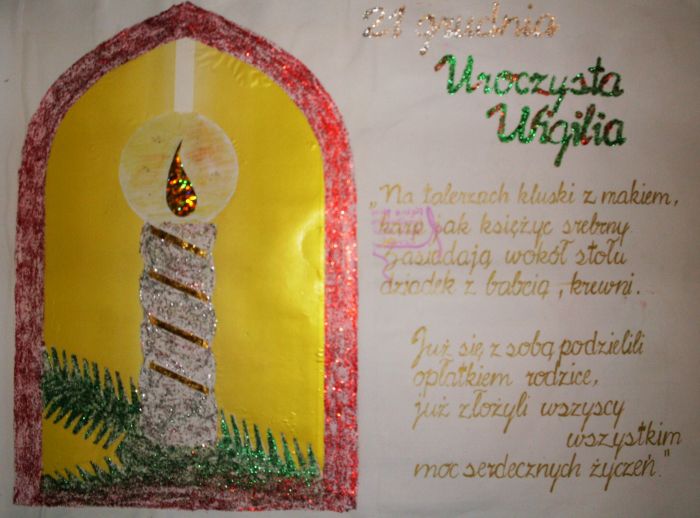 21 grudnia
Uroczysta
Wigilia
„Na talerzach kluski z makiem,
karp jak księżyc srebrny.
Zasiadają wokół stołu
dziadek z babcią, krewni.
Już się z sobą podzielili
opłatkiem rodzice,
już złożyli wszyscy
wszystkim
moc serdecznych życzeń."